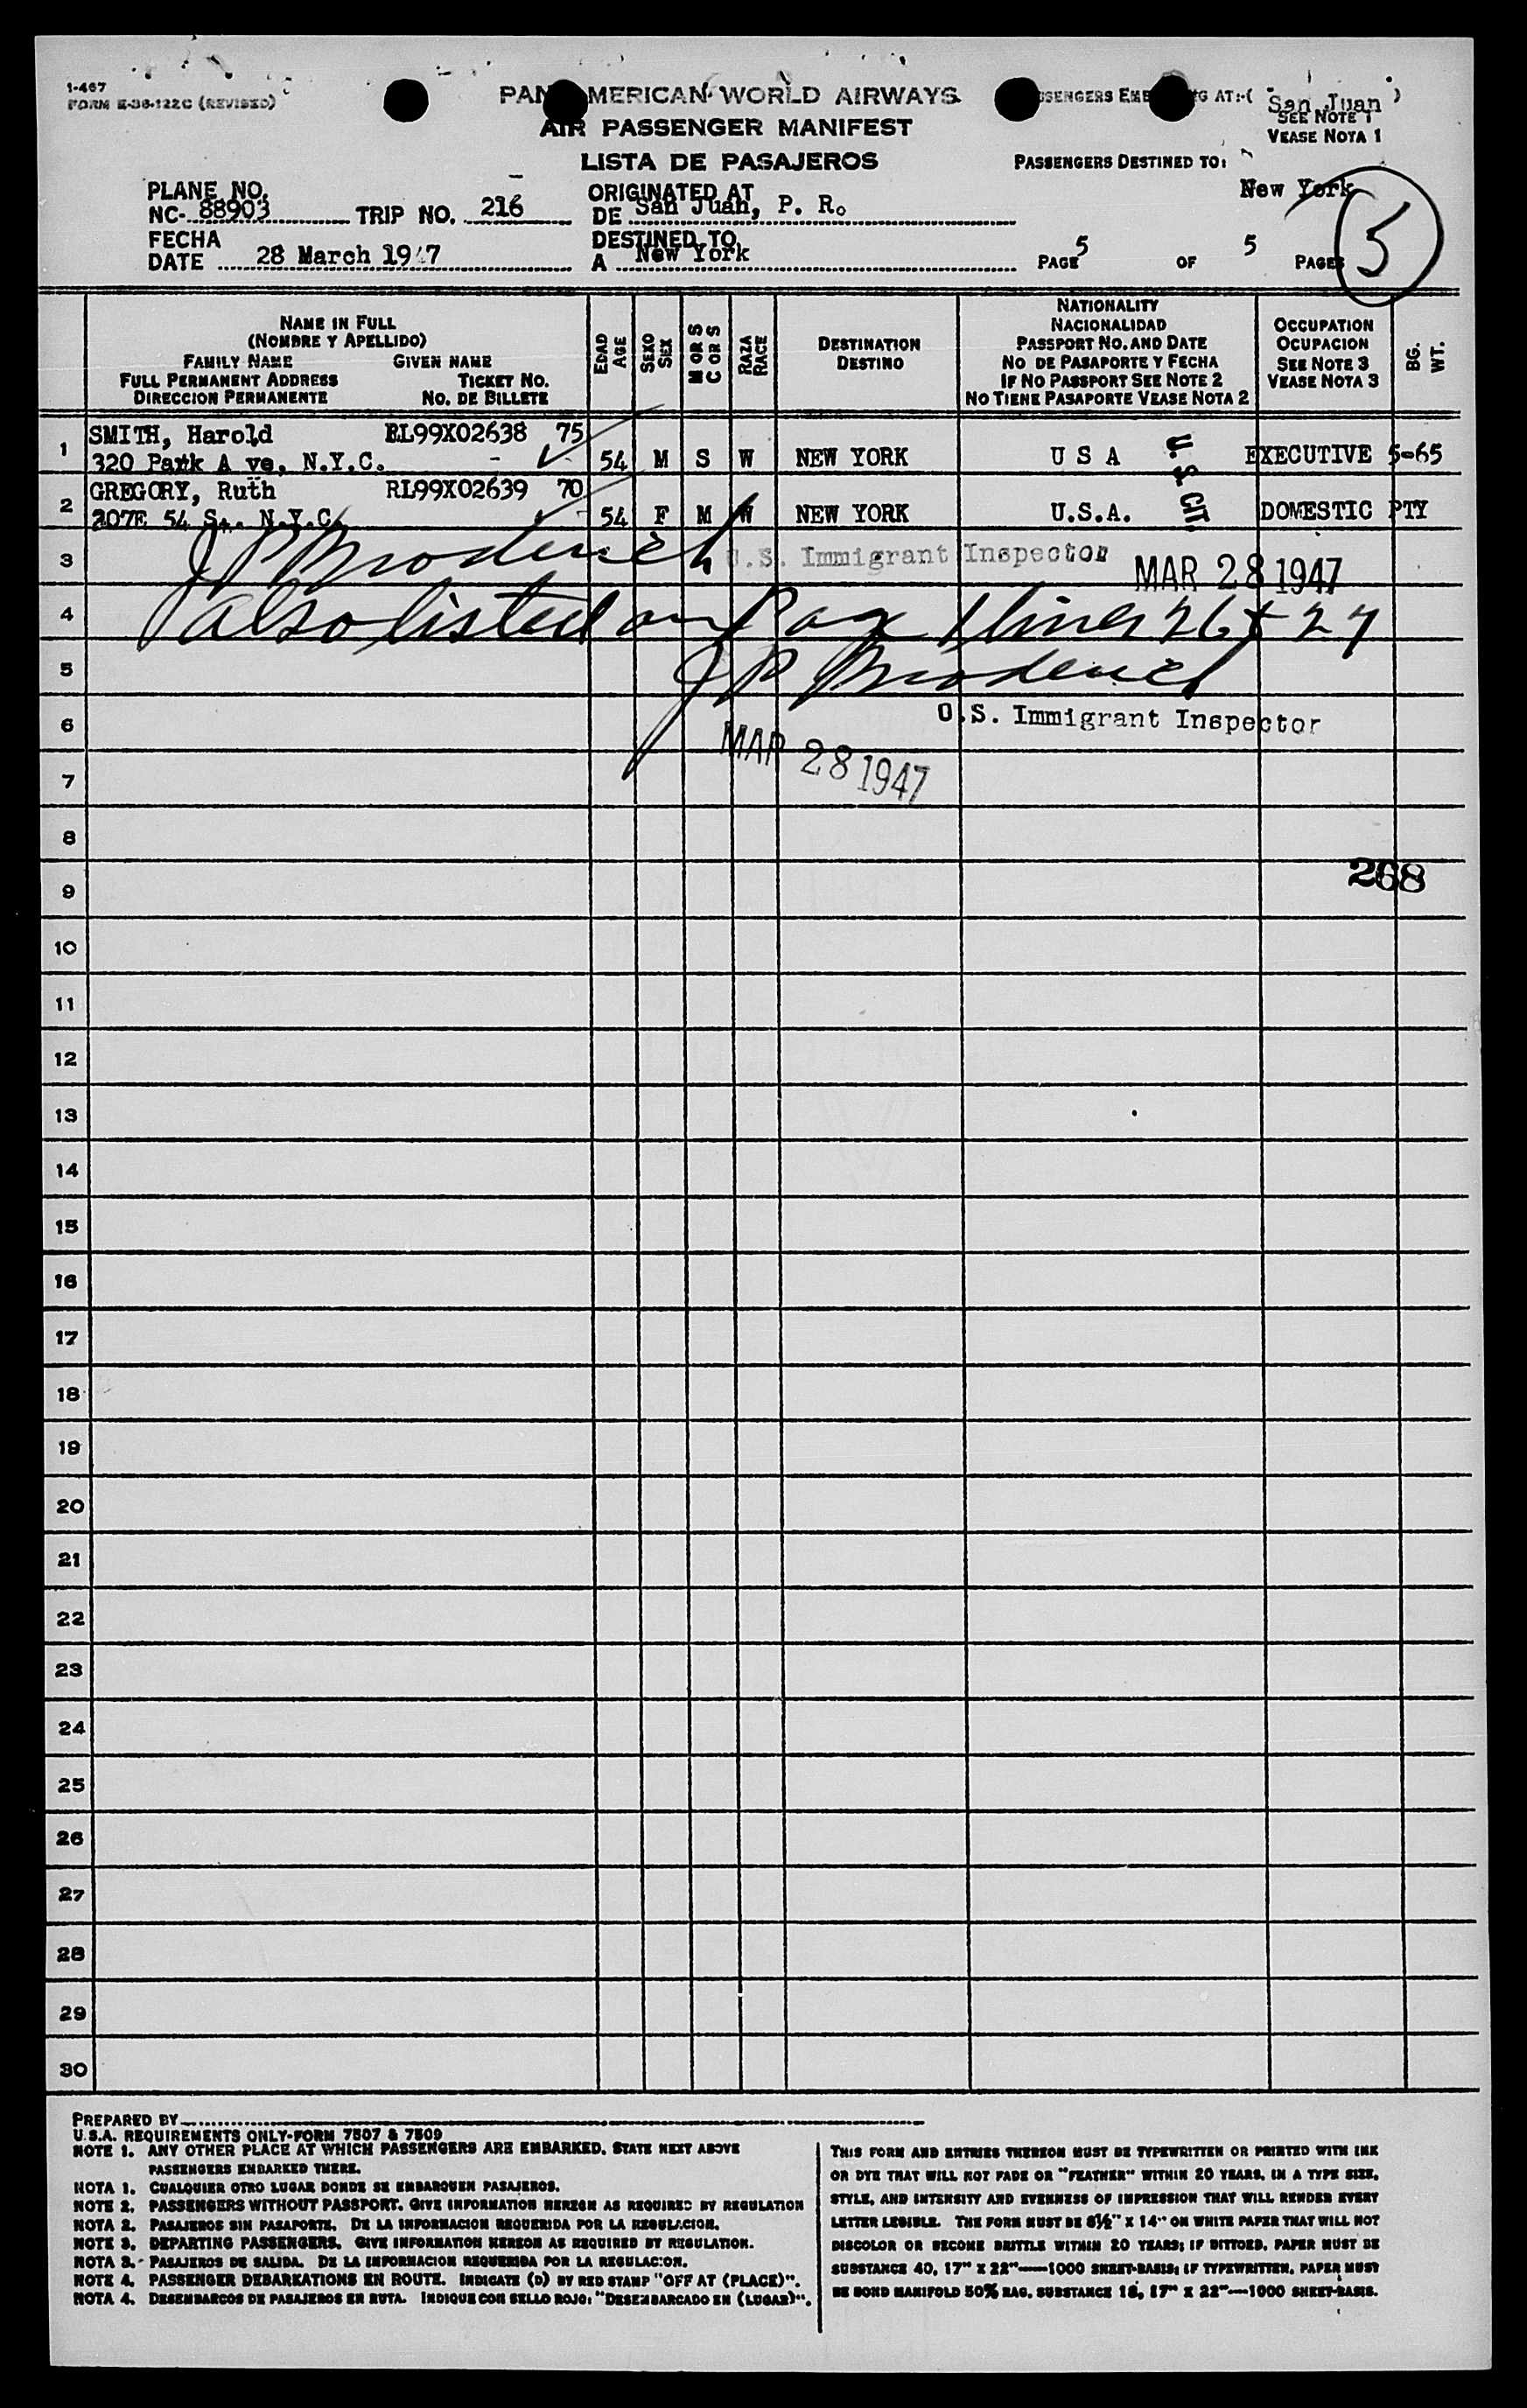 1-467
FORM E-36-122C (REVISED)
PAN AMERICAN WORLD AIRWAYS
AIR PASSENGER MANIFEST
LISTA DE PASAJEROS
PASSENGERS EMBARKING AT:-( San Juan )
SEE NOTE 1
VEASE NOTA 1
PASSENGERS DESTINED TO:
New York
PLANE NO.
NC- 88903 TRIP NO. 216
ORIGINATED AT
DE San Juan, P. R.
FECHA
DATE 28 March 1947
DESTINED TO
A New York
PAGE 5 OF 5 PAGES
5
NAME IN FULL
(NOMBRE Y APELLIDO)
FAMILY NAME GIVEN NAME
FULL PERMANENT ADDRESS TICKET NO.
DIRECCION PERMANENTE NO. DE BILLETE
EDAD
AGE
SEXO
SEX
M OR S
C OR S
RAZA
RACE
DESTINATION
DESTINO
NATIONALITY
NACIONALIDAD
PASSPORT NO. AND DATE
NO DE PASAPORTE Y FECHA
IF NO PASSPORT SEE NOTE 2
NO TIENE PASAPORTE VEASE NOTA 2
OCCUPATION
OCUPACION
SEE NOTE 3
VEASE NOTA 3
BG.
WT.
1 SMITH, Harold RL99X02638 75
320 Park A ve, N.Y.C. 54 M S W NEW YORK U S A EXECUTIVE 5-65
U. S. CIT.
2 GREGORY, Ruth RL99X02639 70
207E 54 St. N.Y.C. 54 F M W NEW YORK U.S.A. DOMESTIC PTY
3 J P Broderick U.S. Immigrant Inspector MAR 28 1947
4 Also listed on Pag 1 lines 26 & 27
5 J P Broderick
6 U.S. Immigrant Inspector
MAR 28 1947
7
8
268
9
10
11
12
13
14
15
16
17
18
19
20
21
22
23
24
25
26
27
28
29
30
PREPARED BY
U.S.A. REQUIREMENTS ONLY-FORM 7507 & 7509
NOTE 1. ANY OTHER PLACE AT WHICH PASSENGERS ARE EMBARKED, STATE NEXT ABOVE
PASSENGERS EMBARKED THERE.
NOTA 1. CUALQUIER OTRO LUGAR DONDE SE EMBARQUEN PASAJEROS.
NOTE 2. PASSENGERS WITHOUT PASSPORT. GIVE INFORMATION HEREON AS REQUIRED BY REGULATION
NOTA 2. PASAJEROS SIN PASAPORTE. DE LA INFORMACION REQUERIDA POR LA REGULACION.
NOTE 3. DEPARTING PASSENGERS. GIVE INFORMATION HEREON AS REQUIRED BY REGULATION.
NOTA 3. PASAJEROS DE SALIDA. DE LA INFORMACION REQUERIDA POR LA REGULACION.
NOTE 4. PASSENGER DEBARKATIONS EN ROUTE. INDICATE (D) BY RED STAMP "OFF AT (PLACE)".
NOTA 4. DESEMBARCOS DE PASAJEROS EN RUTA. INDIQUE CON SELLO ROJO: "DESEMBARCADO EN (LUGAR)".
THIS FORM AND ENTRIES THEREON MUST BE TYPEWRITTEN OR PRINTED WITH INK
OR DYE THAT WILL NOT FADE OR "FEATHER" WITHIN 20 YEARS, IN A TYPE SIZE,
STYLE, AND INTENSITY AND EVENNESS OF IMPRESSION THAT WILL RENDER EVERY
LETTER LEGIBLE. THE FORM MUST BE 8½" X 14" ON WHITE PAPER THAT WILL NOT
DISCOLOR OR BECOME BRITTLE WITHIN 20 YEARS; IF DITTOED, PAPER MUST BE
SUBSTANCE 40, 17" X 22"—1000 SHEET-BASIS; IF TYPEWRITTEN, PAPER MUST
BE BOND MANIFOLD 50% RAG, SUBSTANCE 18, 17" X 22"—1000 SHEET-BASIS.